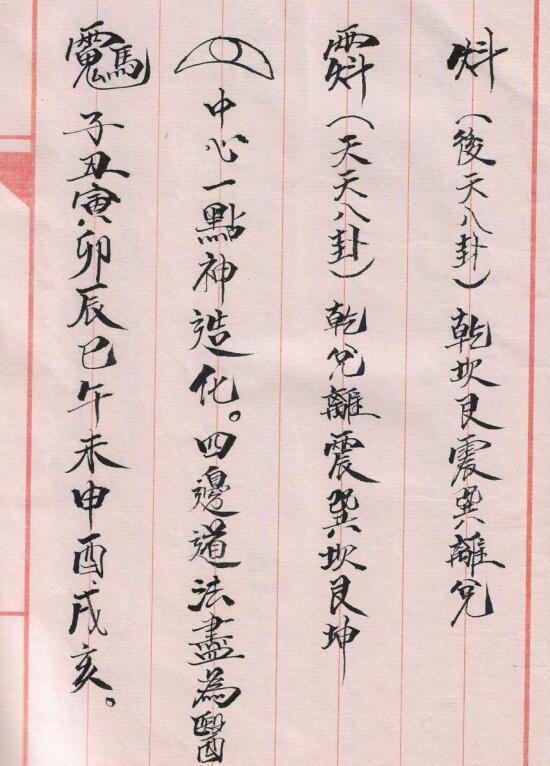 炓(後天八卦)乾坎艮震巽離兌
(天天八卦)乾兌離震巽坎艮坤
中心一點神造化。四邊道法盡為醫
子丑寅卯辰巳午未申酉戌亥。